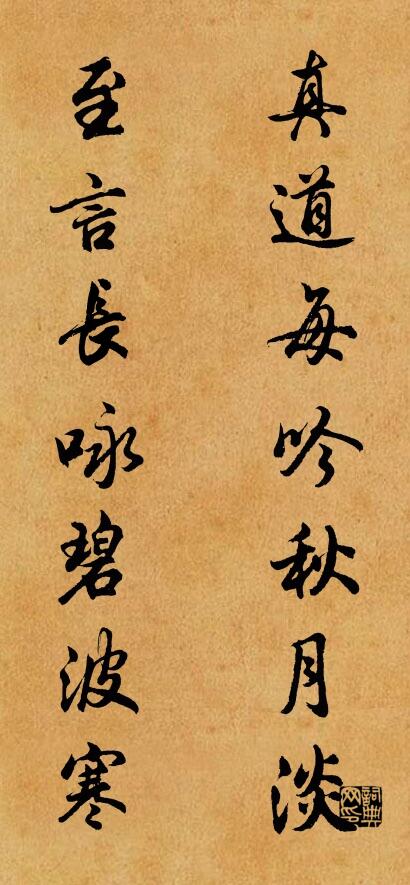 真道每吟秋月淡
至言長咏碧波寒